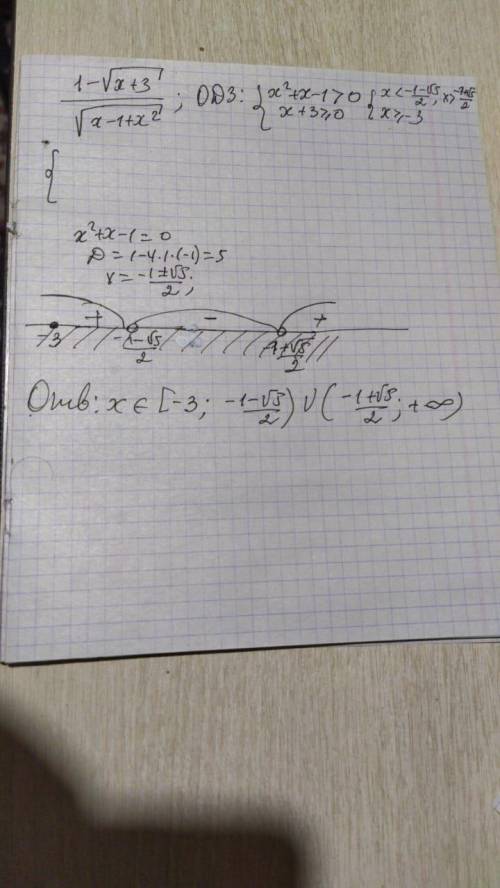 (1-√(x+3))/√(x-1+x²) ; ОДЗ: { x²+x-1>0 { x<(-1-√5)/2; x>(-1+√5)/2
x+3≥0 x≥-3
{
x²+x-1=0
D=1-4·1·(-1)=5
x=(-1±√5)/2;
+ - +
-3 (-1-√5)/2 (-1+√5)/2
Отв: x∈[-3; (-1-√5)/2)∪((-1+√5)/2; +∞)